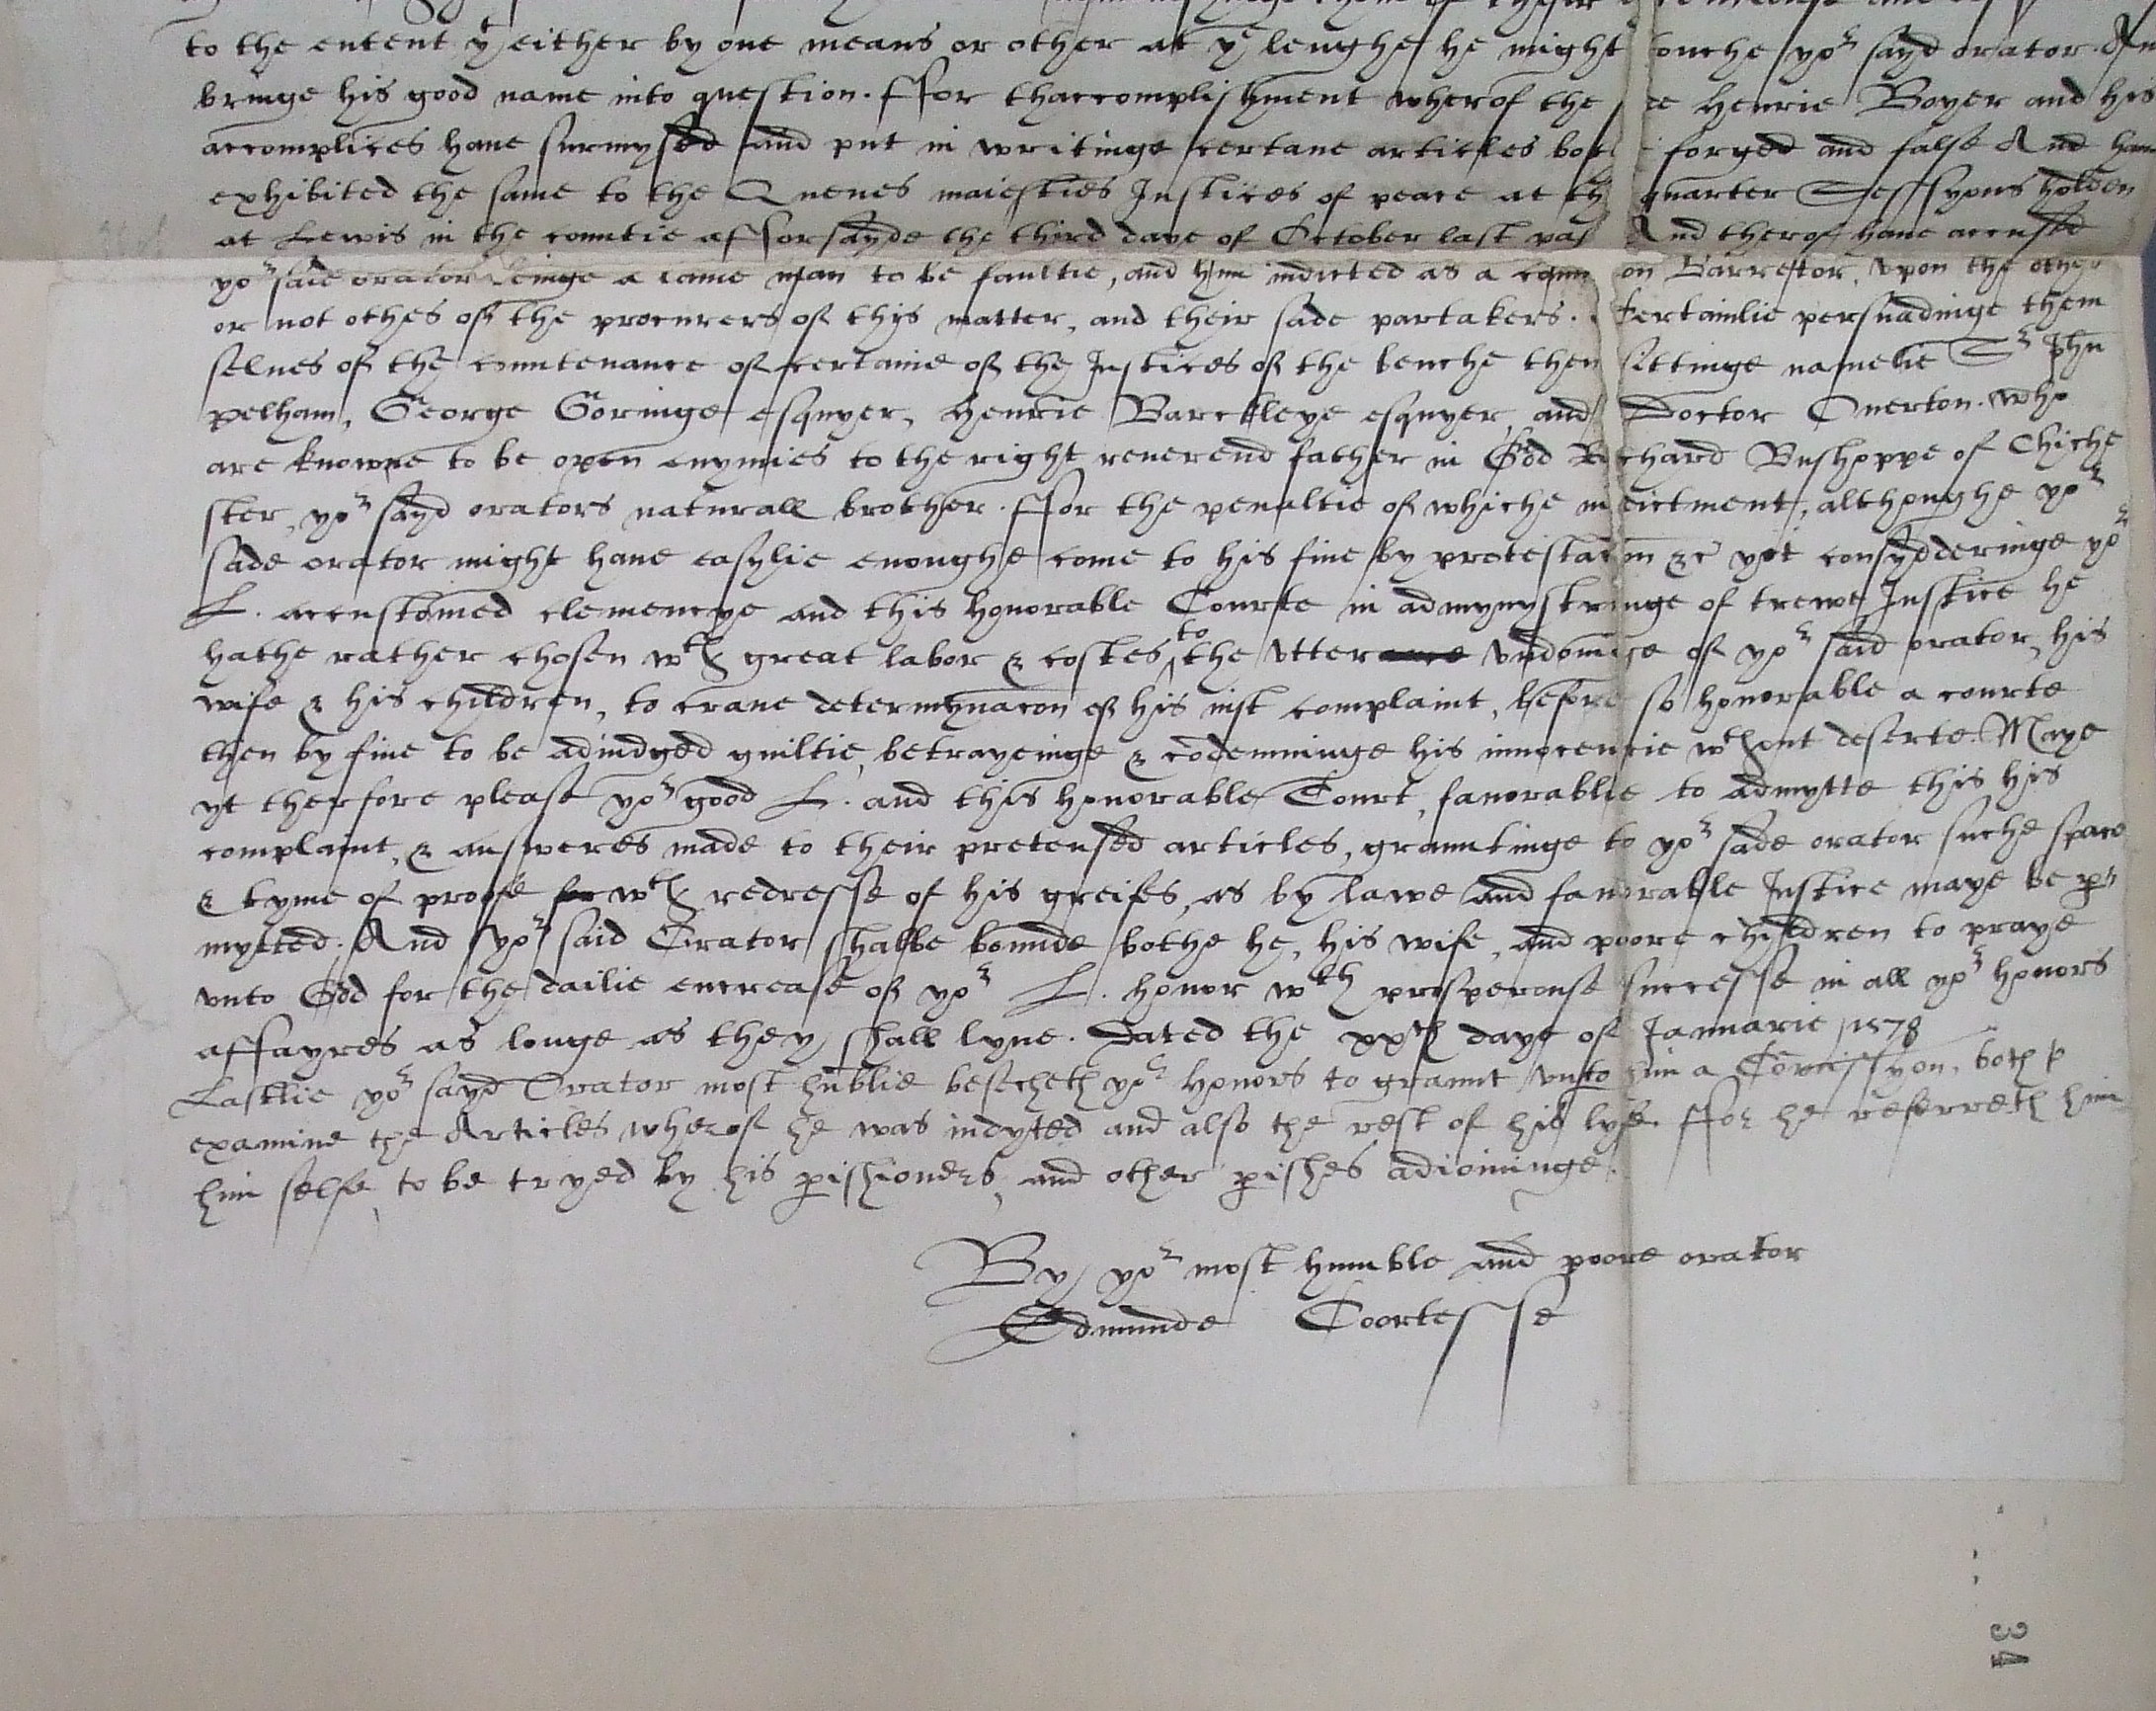 to the entent yt either by one means or other at ye lenghe he might touche yor sayd orator. An
bringe his good name into question. ffor thaccomplishment wherof the Henrie Boyer and his
accomplices haue surmysed and put in writinge certane articles forged and false And haue
exhibited the same to the Quenes maiesties Iustices of peace at th quarter Sessyons holden
at Lewis in the countie afforsayde the third daye of October last pas And therof haue accused
yor saie orator beinge a lame man to be faultie, and hym indicted as a common Barrettor, vpon the othes
or not othes of the procurers of thys matter, and their sade partakers. certainlie perswadinge them
selues of the countenance of certaine of the Iustices of the benche then sittinge namelie Sr Ihn
pelham, George Goringe esquyer, Henrie Barckleye esquyer, and Doctor Ouerton. who
are knowne to be open enymies to the right reuerend father in God Richard Bushoppe of Chiche
ster, yor sayd orators naturall brother. ffor the penaltie of whiche indictment, althoughe yor
sade orator might haue easylie enoughe come to his fine by protestacion &c yet consydderinge yor
L. accustomed clemencye and this honorable Courte in admynystringe of trewe Iustice he
hathe rather chosen wth great labor & costes to the vtter vndoinge of yor said orator, his
wife & his children, to craue determynacon of his iust complaint, before so honorable a courte
then by fine to be adiudged guiltie, betrayeinge & codemninge his innocencie wthout deserte. Maye
yt therfore please yor good L. and this honorable Court, fauorablie to admytte this his
complaint, & answeres made to their pretensed articles, grauntinge to yor sade orator suche space
& tyme of proofe for wth redresse of his greifes, as by lawe and fauorable Iustice maye be per
mytted. And yor said Orator shalbe bounde bothe he, his wife, and poore children to praye
vnto God for the dailie encrease of yor L. honor wth prosperouse successe in all yor honors
affayres as longe as they shall lyue. Dated the xxth daye of Januarie 1578
Lastlie yor sayd Orator most hublie besecheth yor Honors to graunt vnto him a Comissyon, both to
examine the Articles wherof he was indyted and also the rest of his lyfe. ffor he referreth him
him selfe, to be tryed by his pishioners, and other pishes adioininge.
By yor most humble and poore orator
Edmunde Coortesse
34